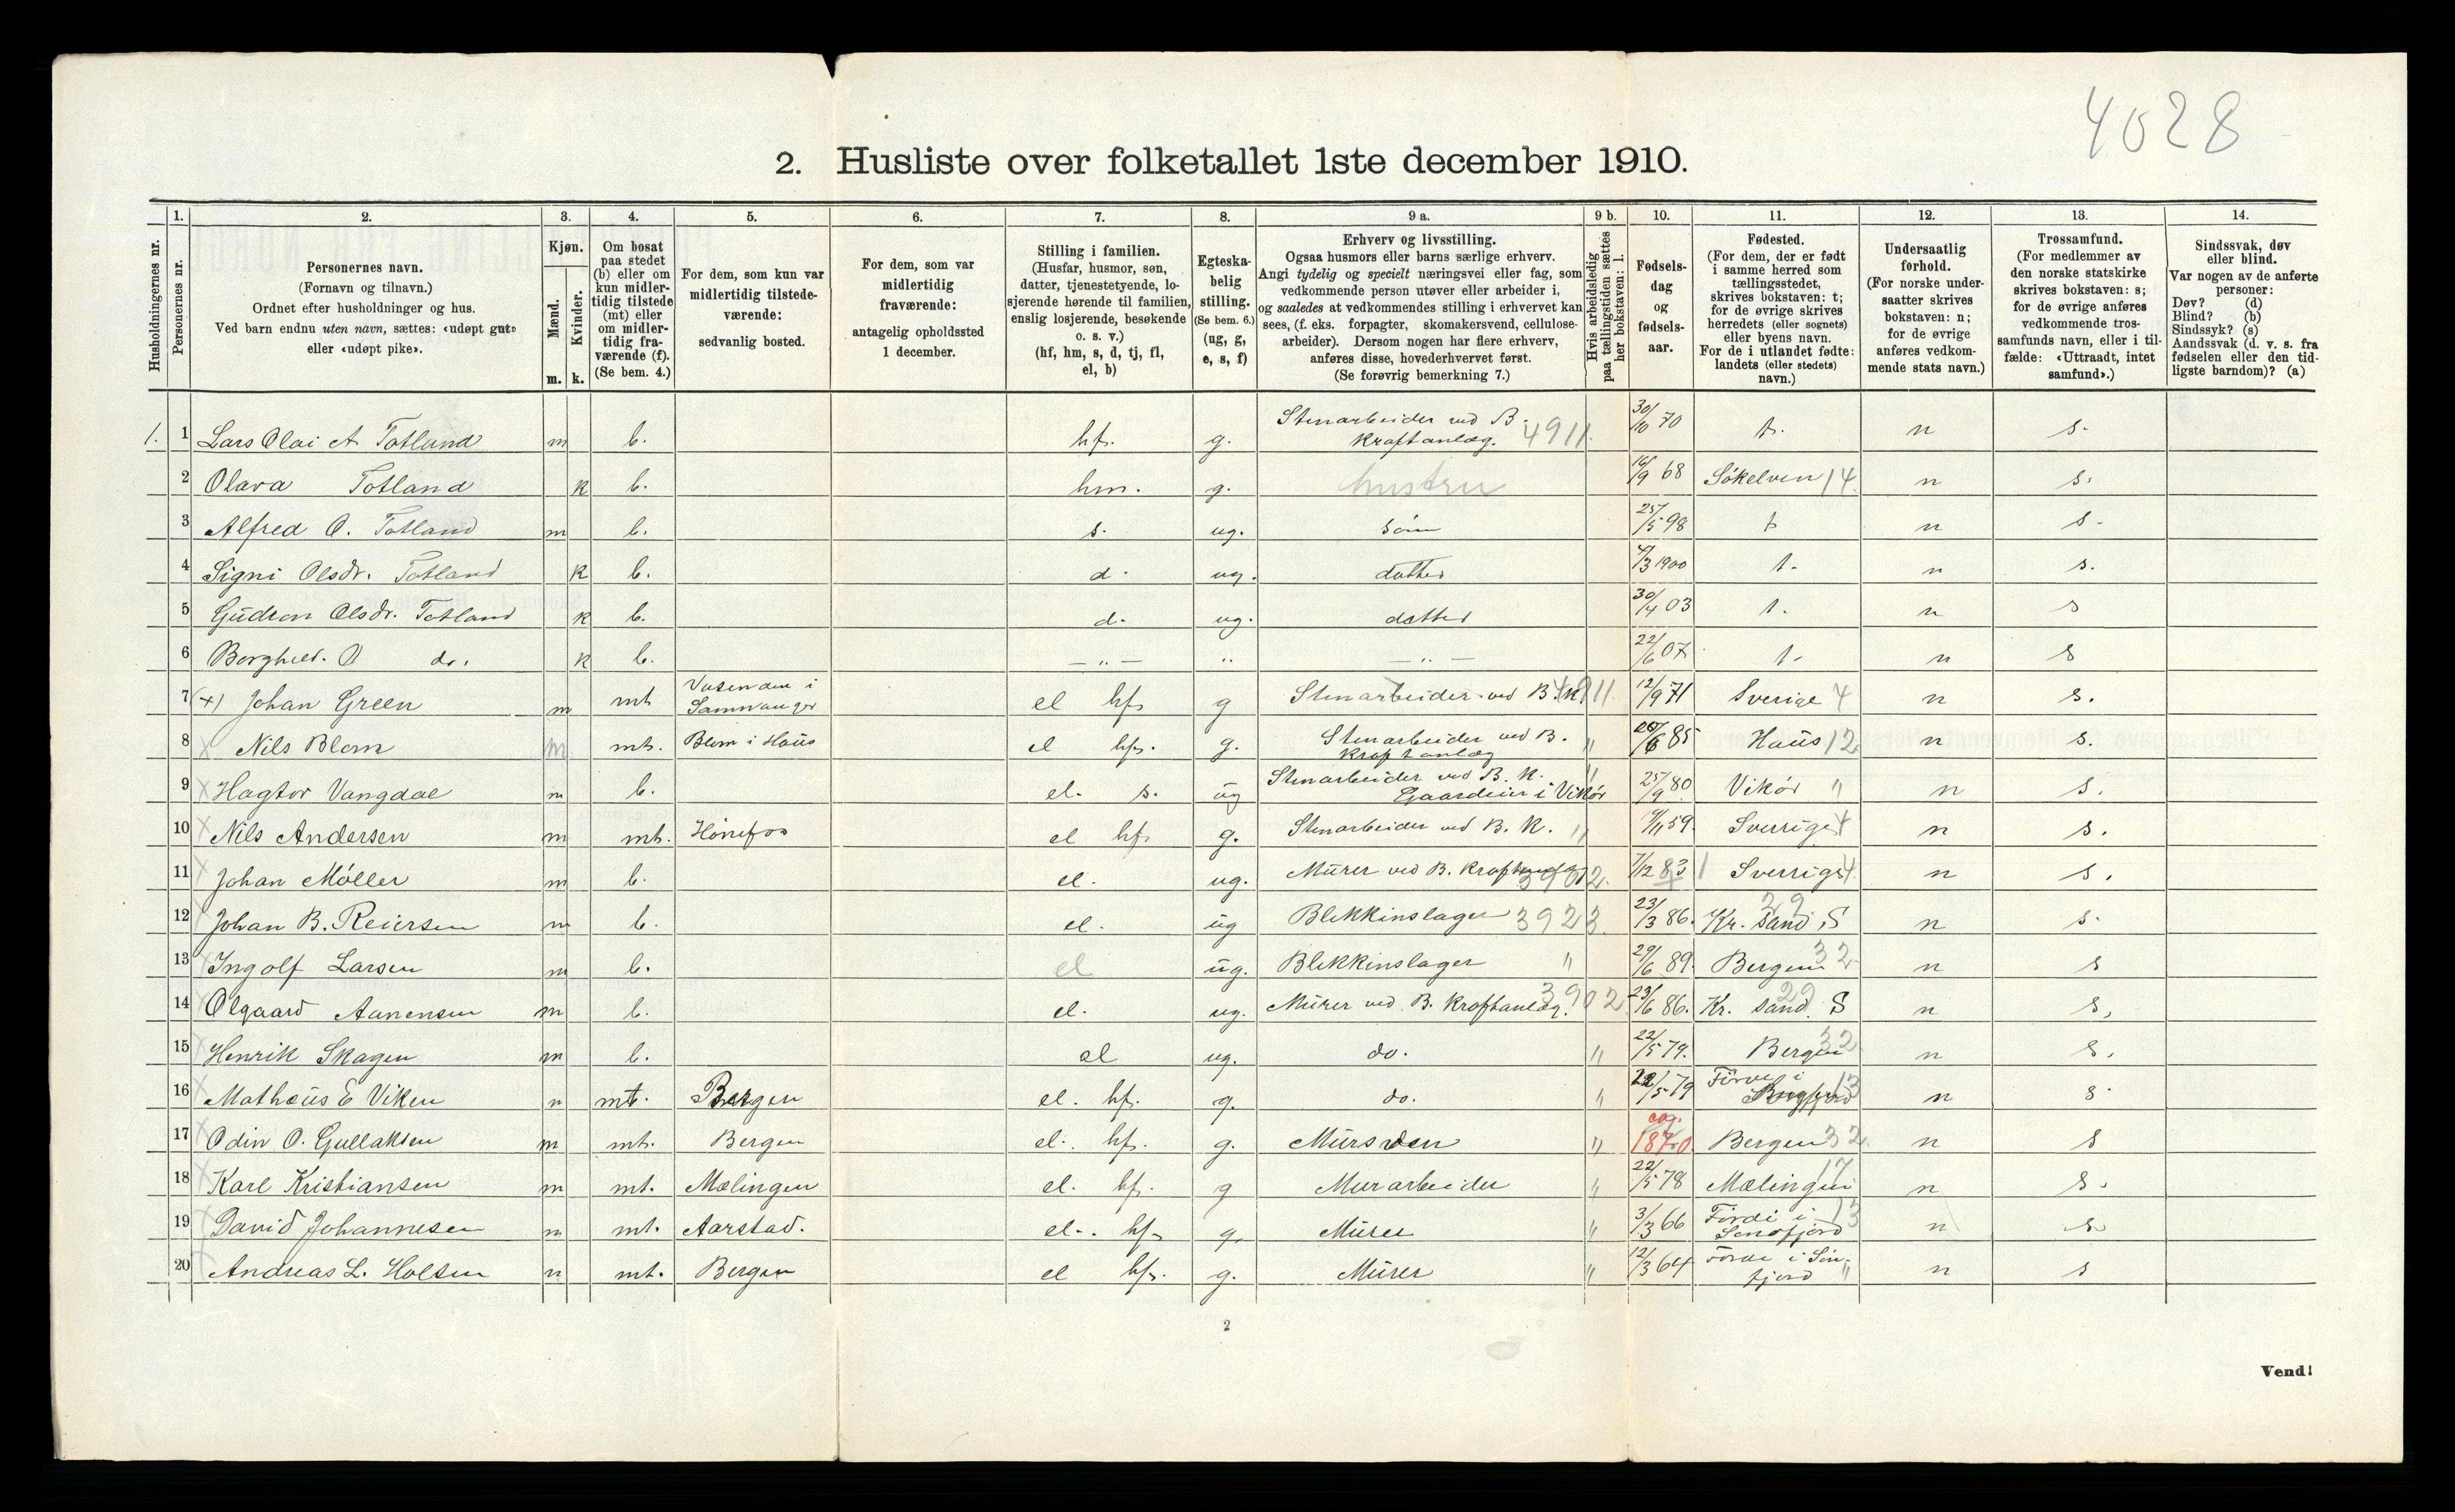 4028
2. Husliste over folketallet 1ste december 1910.
Husholdningernes nr.
1. Personernes nr.
2. Personernes navn.
(Fornavn og tilnavn.)
Ordnet efter husholdninger og hus.
Ved barn endnu uten navn, sættes: «udøpt gut»
eller «udøpt pike».
3. Kjøn.
Mænd. m.
Kvinder. k.
4. Om bosat
paa stedet
(b) eller om
kun midler-
tidig tilstede
(mt) eller
om midler-
tidig fra-
værende (f).
(Se bem. 4.)
5. For dem, som kun var
midlertidig tilstede-
værende:
sedvanlig bosted.
6. For dem, som var
midlertidig
fraværende:
antagelig opholdssted
1 december.
7. Stilling i familien.
(Husfar, husmor, søn,
datter, tjenestetyende, lo-
sjerende hørende til familien,
enslig losjerende, besøkende
o. s. v.)
(hf, hm, s, d, tj, fl,
el, b)
8. Egteska-
belig
stilling.
(Se bem. 6.)
(ug, g,
e, s, f)
9 a. Erhverv og livsstilling.
Ogsaa husmors eller barns særlige erhverv.
Angi tydelig og specielt næringsvei eller fag, som
vedkommende person utøver eller arbeider i,
og saaledes at vedkommendes stilling i erhvervet kan
sees, (f. eks. forpagter, skomakersvend, cellulose-
arbeider). Dersom nogen har flere erhverv,
anføres disse, hovederhvervet først.
(Se forøvrig bemerkning 7.)
9 b. Hvis arbeidsledig
paa tællingstiden sættes
her bokstaven: l.
10. Fødsels-
dag
og
fødsels-
aar.
11. Fødested.
(For dem, der er født
i samme herred som
tællingsstedet,
skrives bokstaven: t;
for de øvrige skrives
herredets (eller sognets)
eller byens navn.
For de i utlandet fødte:
landets (eller stedets)
navn.)
12. Undersaatlig
forhold.
(For norske under-
saatter skrives
bokstaven: n;
for de øvrige
anføres vedkom-
mende stats navn.)
13. Trossamfund.
(For medlemmer av
den norske statskirke
skrives bokstaven: s;
for de øvrige anføres
vedkommende tros-
samfunds navn, eller i til-
fælde: «Uttraadt, intet
samfund».)
14. Sindssvak, døv
eller blind.
Var nogen av de anførte
personer:
Døv? (d)
Blind? (b)
Sindssyk? (s)
Aandssvak (d. v. s. fra
fødselen eller den tid-
ligste barndom)? (a)
1. 1 Lars Olai A Totland m b. hf. g. Stenarbeider ved B. Kraftanlæg. 4911. 30/10 70 t. n s.
2 Olava Totland k b. hm. g. hustru 16/9 68 Søkelven 14 n s.
3 Alfred O. Totland m b. s. ug. søn 25/5 98 t n s.
4 Signi Olsdr. Totland k b. d. ug. datter 4/3 1900 t. n s.
5 Gudron Olsdr. Totland k b. d. ug. datter 30/4 03 t. n s
6 Borghild. O do. k b. — „ — „ — „ — 22/6 07 t. n s
7 (+) Johan Green m mt Vasenden i Samnanger el hf. g Stenarbeider ved B. K 4911. 12/9 71 Sverige 4 n s.
8 x Nils Blom m mt. Blom i Haus el hf. g. Stenarbeider ved B. Kraftanlæg " /6 85 Haus 12 n s.
9 x Hagtor Vangdal m b. el. s. ug Stenarbeider ved B. K. Gaardeier i Vikør " 25/9 80 Vikør " n s.
10 x Nils Andersen m mt. Hønefos el hf. g. Stenarbeider ved B. K. " /11 59. Sverrige 4 n s.
11 x Johan Møller m b. el. ug. Murer ved B. 3902. 7/12 83 Sverrige 4. n s.
12 x Johan B. Reiersen m b. el. ug Blekkinslager 3923. 23/3 86. Kr. sand. S 29 n s.
13 x Ingolf Larsen m b. el ug. Blekkinslager " 29/6 89. Bergen 32 n s
14 x Olgaard Aanensen m b. el. ug. Murer ved B. Kraftanlæg. 3902 23/6 86. Kr. sand. S 29 n s,
15 x Henrik Skagen m b. el ug. do. " 22/5 79. Bergen 32 n s.
16 x Mathæus E Viken m mt. Bergen el. hf. g. do. " 22/5 79 13 n s
17 x Odin O. Gullaksen m mt. Bergen el. hf. g. Mursven " ca. 1870. Bergen 32. n s
18 x Karl Kristiansen m mt. Mælingen el. hf. g Murarbeider " 22/5 78 Mælingen 17 n s.
19 x David Johannesen m mt. Aarstad. el. hf. g. Murer " 3/3 66 Førde i Sønfjord 13 n s
20 x Andreas L. Holsen m mt. Bergen el hf. g. Murer " 12/3 64 Førde i Sønfjord " n s
2
Vend!